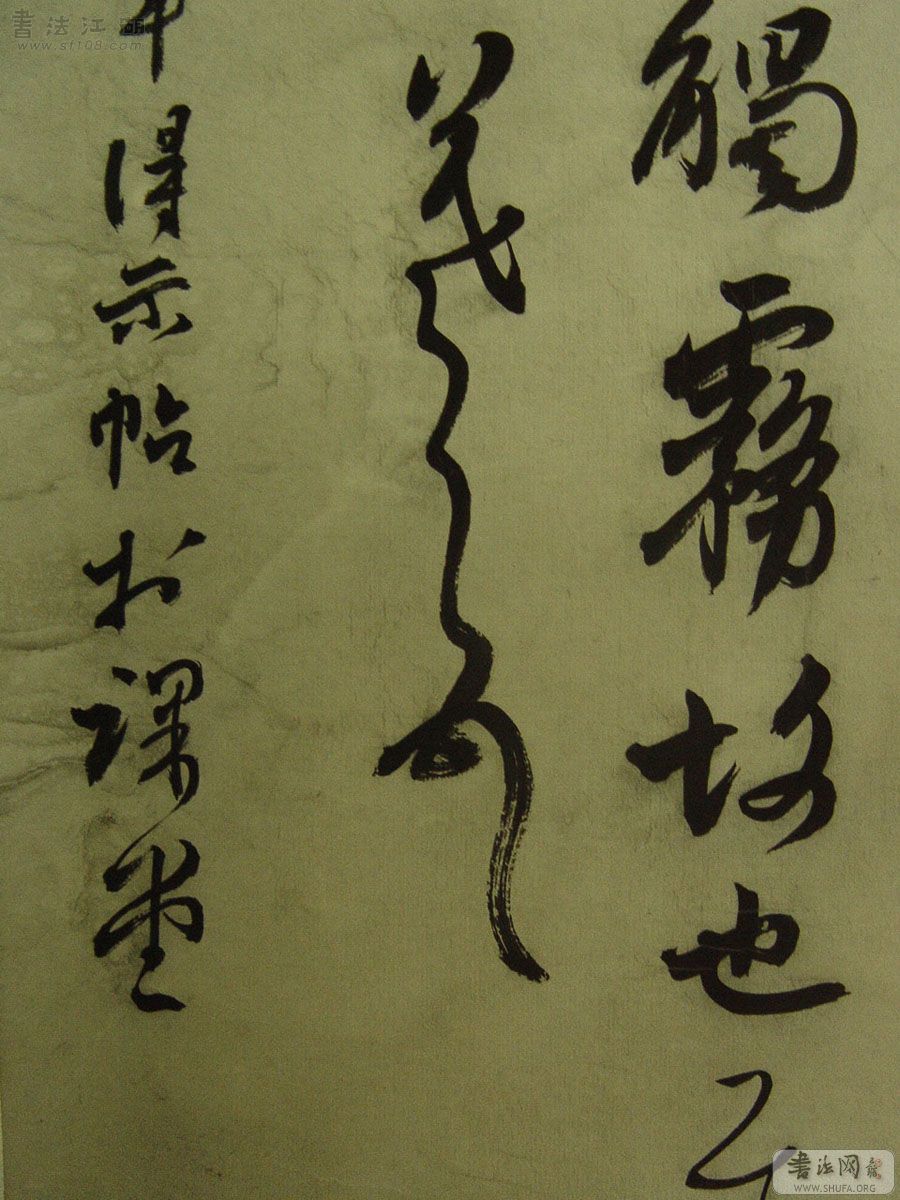 觸霧故也
羲之頓首
得示帖於課堂
書法江湖
www.sf108.com
書法网
WWW.SHUFA.ORG